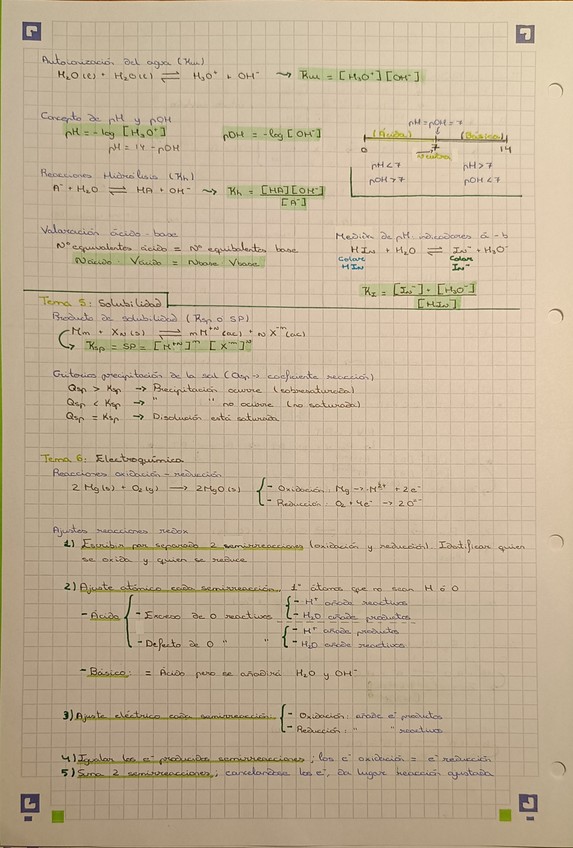 Autoionización del agua (Kw)
H₂O(l) + H₂O(l) ⇌ H₃O⁺ + OH⁻ → Kw = [H₃O⁺][OH⁻]
Concepto de pH y pOH
pH = -log [H₃O⁺] pOH = -log [OH⁻]
pH = 14 - pOH
pH = pOH = 7
(Ácida) (Básica)
0 7 14
Neutra
pH < 7 pH > 7
pOH > 7 pOH < 7
Reacciones Hidrólisis (Kh)
A⁻ + H₂O ⇌ HA + OH⁻ → Kh = [HA][OH⁻] / [A⁻]
Valoración ácido-base
Nº equivalentes ácido = Nº equivalentes base
Nácido · Vácido = Nbase · Vbase
Medida de pH, indicadores á-b
HIn + H₂O ⇌ In⁻ + H₃O⁺
Color Color
HIn In⁻
KI = [In⁻] · [H₃O⁺] / [HIn]
Tema 5: Solubilidad
Producto de solubilidad (Ksp o SP)
Mm + XN(s) ⇌ mM⁺ᴺ(ac) + N X⁻ᵐ(ac)
Ksp = SP = [M⁺ᴺ]ᵐ [X⁻ᵐ]ᴺ
Criterios precipitación de la sal (Qsp → coeficiente reacción)
Qsp > Ksp → Precipitación ocurre (sobresaturada)
Qsp < Ksp → " " no ocurre (no saturada)
Qsp = Ksp → Disolución está saturada
Tema 6: Electroquímica
Reacciones oxidación - reducción
2 Mg(s) + O₂(g) → 2MgO(s)
- Oxidación: Mg → M²⁺ + 2e⁻
- Reducción: O₂ + 4e⁻ → 2O²⁻
Ajustes reacciones redox
1) Escribir por separado 2 semirreacciones (oxidación y reducción). Identificar quien
se oxida y quien se reduce
2) Ajuste atómico cada semirreacción. 1º átomos que no sean H ó O
- Ácido
- Exceso de O reactivos
- H⁺ añade reactivos
- H₂O añade productos
- Defecto de O " "
- H⁺ añade productos
- H₂O añade reactivos
- Básico: = Ácido pero se añadirá H₂O y OH⁻
3) Ajuste eléctrico cada semirreacción.
- Oxidación: añade e⁻ productos
- Reducción: " " reactivos
4) Igualar los e⁻ producidos semirreacciones; los e⁻ oxidación = e⁻ reducción
5) Suma 2 semirreacciones; cancelandose los e⁻, da lugar reacción ajustada